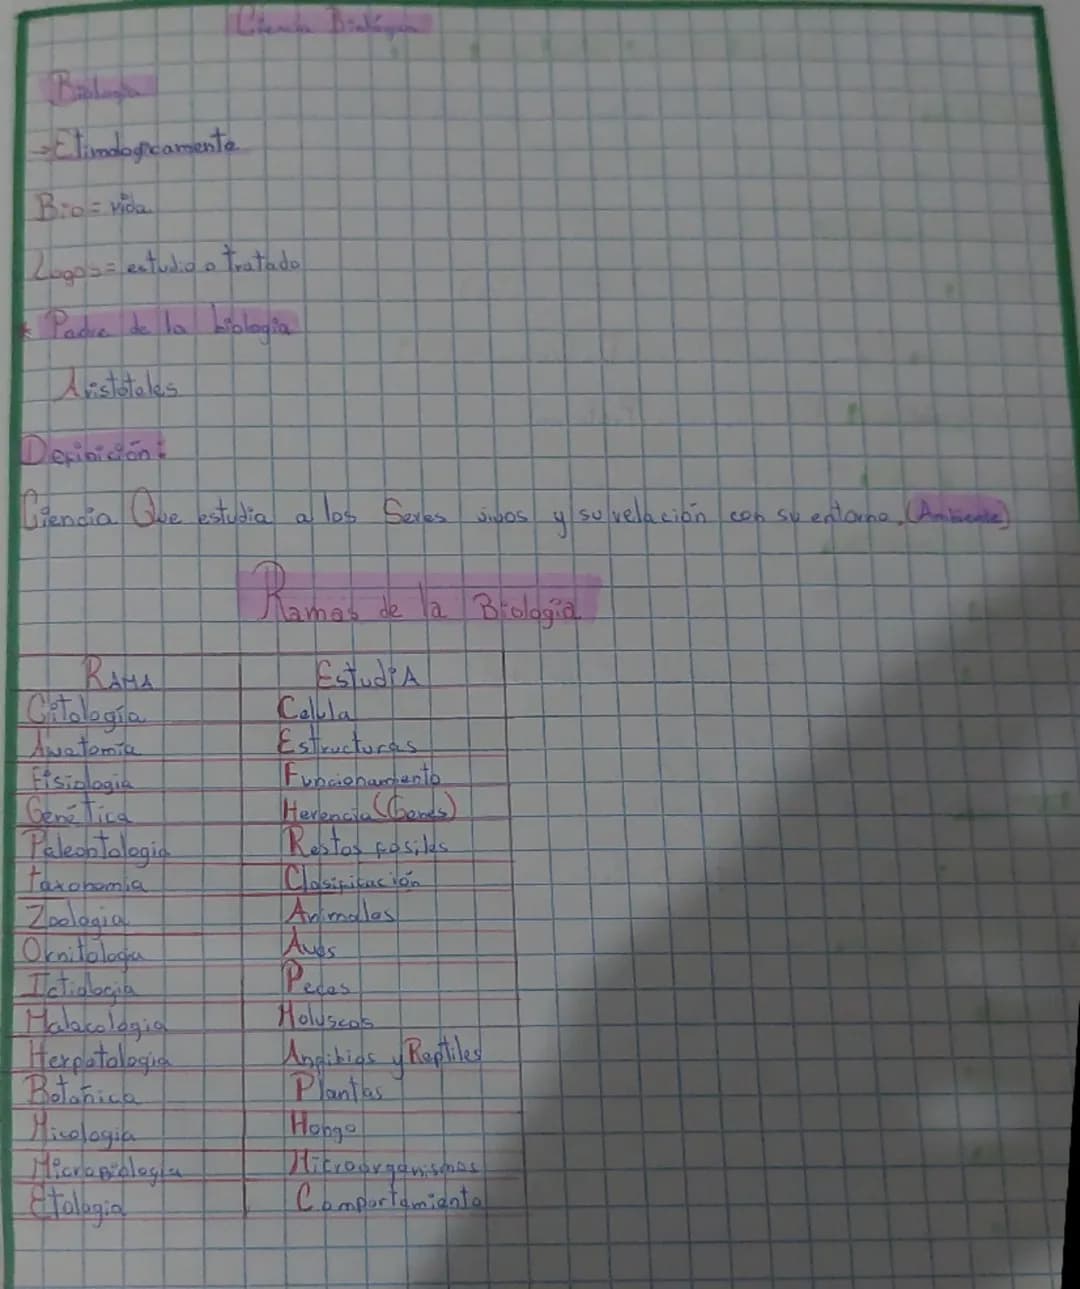 Ciencia Biológica
Biología
→Etimologicamente
Bio = vida
Logos = estudio o tratado
* Padre de la biología
Aristóteles
Definición:
Ciencia Que estudia a los Seres vivos y su relación con su entorno. (Ambiente)
Ramas de la Biología
RAMA EstudiA
Citología Celula
Anatomía Estructuras
Fisiología Funcionamiento
Genética Herencia (Genes)
Paleontologia Restos fósiles
taxonomia Clasificación
Zoologia Animales
Ornitologia Aves
Ictiologia Peces
Malacología Moluscos
Herpetologia Anfibios y Reptiles
Botánica Plantas
Micologia Hongo
Microbiología Microorganismos
Etologia Comportamiento